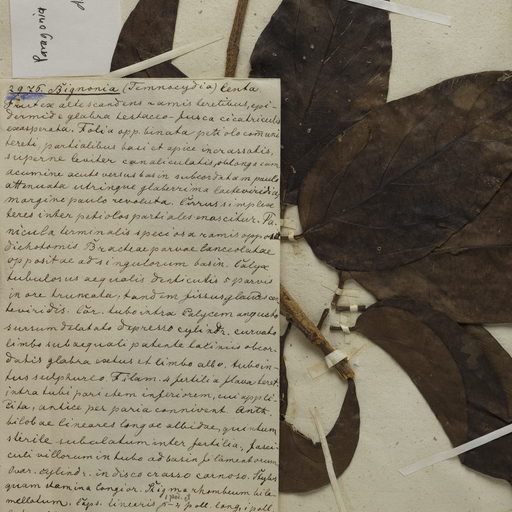 Paragonia
2976. Bignonia (Temnocydia) lenta
Frutex alte scandens ramis teretibus, epi-
dermide glabra testaceo-fusca cicatriculis
exasperata. Folia opp. binata petiolo communi
tereti, partialibus basi et apice incrassatis,
superne leviter canaliculatis, oblonga cum
acumine acuto versus basin subcordatam paulo
attenuata utrinque glaberrima laeteviridia
margine paulo revoluta. Cirrus simplex
teres inter petiolos partiales nascitur. Pa-
nicula terminalis speciosa ramis oppositis
dichotomis. Bracteae parvae lanceolatae
oppositae ad singulorum basin. Calyx
tubulosus aequalis denticulis 5 parvis
in ore truncato, tandem fissus
teviridis. Cor. tubo intra calycem angusto
sursum dilatato depresso cylindr. curvato
limbo subaequali patente laciniis obcor-
datis glabra extus et limbo albo, tubo in-
tus sulphureo. Filam. 4 fertilia flava teret.
intra tubi partem inferiorem, cui appli-
cita, antice per paria connivent. Anth.
bilobae lineares longae albidae, quintum
sterile subulatum inter fertilia, fasci-
culi villorum in tubo ad basin filamentorum
Ovar. cylindr. in disco crasso carnoso. Stylus
quam stamina longior. Stigma rhombeum bila-
mellatum. Caps. linearis poll. long. 1 poll.